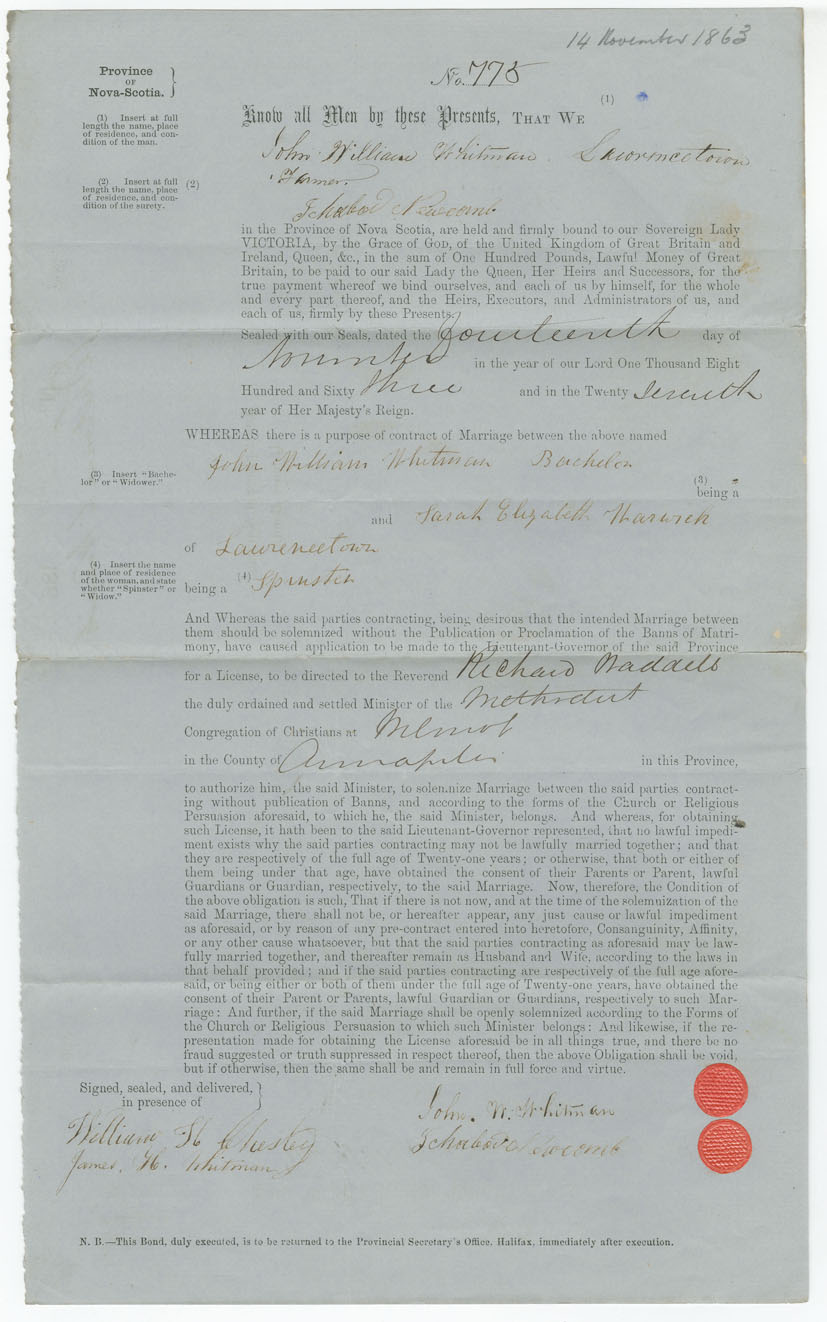 14 November 1863
Province
OF
Nova-Scotia.
No. 775
(1)
(1) Insert at full
length the name, place
of residence, and con-
dition of the man.
Know all Men by these Presents, THAT WE
John William Whitman Lawrencetown
Farmer.
(2) Insert at full
length the name, place
of residence, and con-
dition of the surety.
(2)
Ichabod Newcomb
in the Province of Nova Scotia, are held and firmly bound to our Sovereign Lady
VICTORIA, by the Grace of GOD, of the United Kingdom of Great Britain and
Ireland, Queen, &c., in the sum of One Hundred Pounds, Lawful Money of Great
Britain, to be paid to our said Lady the Queen, Her Heirs and Successors, for the
true payment whereof we bind ourselves, and each of us by himself, for the whole
and every part thereof, and the Heirs, Executors, and Administrators of us, and
each of us, firmly by these Presents.
Sealed with our Seals, dated the fourteenth day of
November in the year of our Lord One Thousand Eight
Hundred and Sixty three and in the Twenty Seventh
year of Her Majesty's Reign.
WHEREAS there is a purpose of contract of Marriage between the above named
John William Whitman Bachelor
(3) Insert "Bache-
lor" or "Widower."
(3)
being a
and Sarah Elizabeth Warwick
of Lawrencetown
(4) Insert the name
and place of residence
of the woman, and state
whether "Spinster" or
"Widow."
being a (4) Spinster
And Whereas the said parties contracting, being desirous that the intended Marriage between
them should be solemnized without the Publication or Proclamation of the Banns of Matri-
mony, have caused application to be made to the Lieutenant-Governor of the said Province
for a License, to be directed to the Reverend Richard Waddell
the duly ordained and settled Minister of the Methodist
Congregation of Christians at Wilmot
in the County of Annapolis in this Province,
to authorize him, the said Minister, to solemnize Marriage between the said parties contract-
ing without publication of Banns, and according to the forms of the Church or Religious
Persuasion aforesaid, to which he, the said Minister, belongs. And whereas, for obtaining
such License, it hath been to the said Lieutenant-Governor represented, that no lawful impedi-
ment exists why the said parties contracting may not be lawfully married together; and that
they are respectively of the full age of Twenty-one years; or otherwise, that both or either of
them being under that age, have obtained the consent of their Parents or Parent, lawful
Guardians or Guardian, respectively, to the said Marriage. Now, therefore, the Condition of
the above obligation is such, That if there is not now, and at the time of the solemnization of the
said Marriage, there shall not be, or hereafter appear, any just cause or lawful impediment
as aforesaid, or by reason of any pre-contract entered into heretofore, Consanguinity, Affinity,
or any other cause whatsoever, but that the said parties contracting as aforesaid may be law-
fully married together, and thereafter remain as Husband and Wife, according to the laws in
that behalf provided; and if the said parties contracting are respectively of the full age afore-
said, or being either or both of them under the full age of Twenty-one years, have obtained the
consent of their Parent or Parents, lawful Guardian or Guardians, respectively to such Mar-
riage: And further, if the said Marriage shall be openly solemnized according to the Forms of
the Church or Religious Persuasion to which such Minister belongs: And likewise, if the re-
presentation made for obtaining the License aforesaid be in all things true, and there be no
fraud suggested or truth suppressed in respect thereof, then the above Obligation shall be void,
but if otherwise, then the same shall be and remain in full force and virtue.
Signed, sealed, and delivered,
in presence of
John. W. Whitman
William H Chesley
Ichabod Newcomb
James. H. Whitman
N. B.—This Bond, duly executed, is to be returned to the Provincial Secretary's Office, Halifax, immediately after execution.